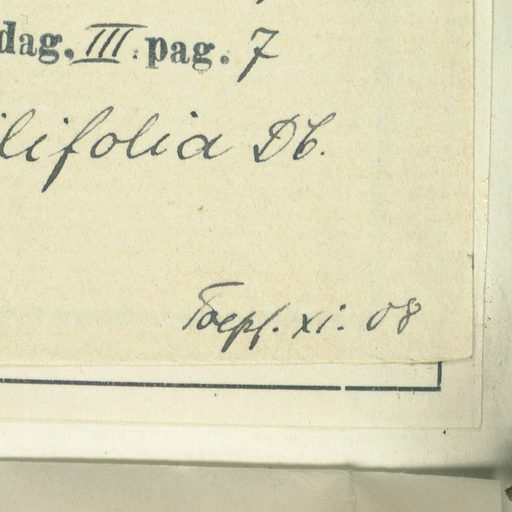 dag. III. pag. 7
ilifolia Db.
Toepf. xi. 08